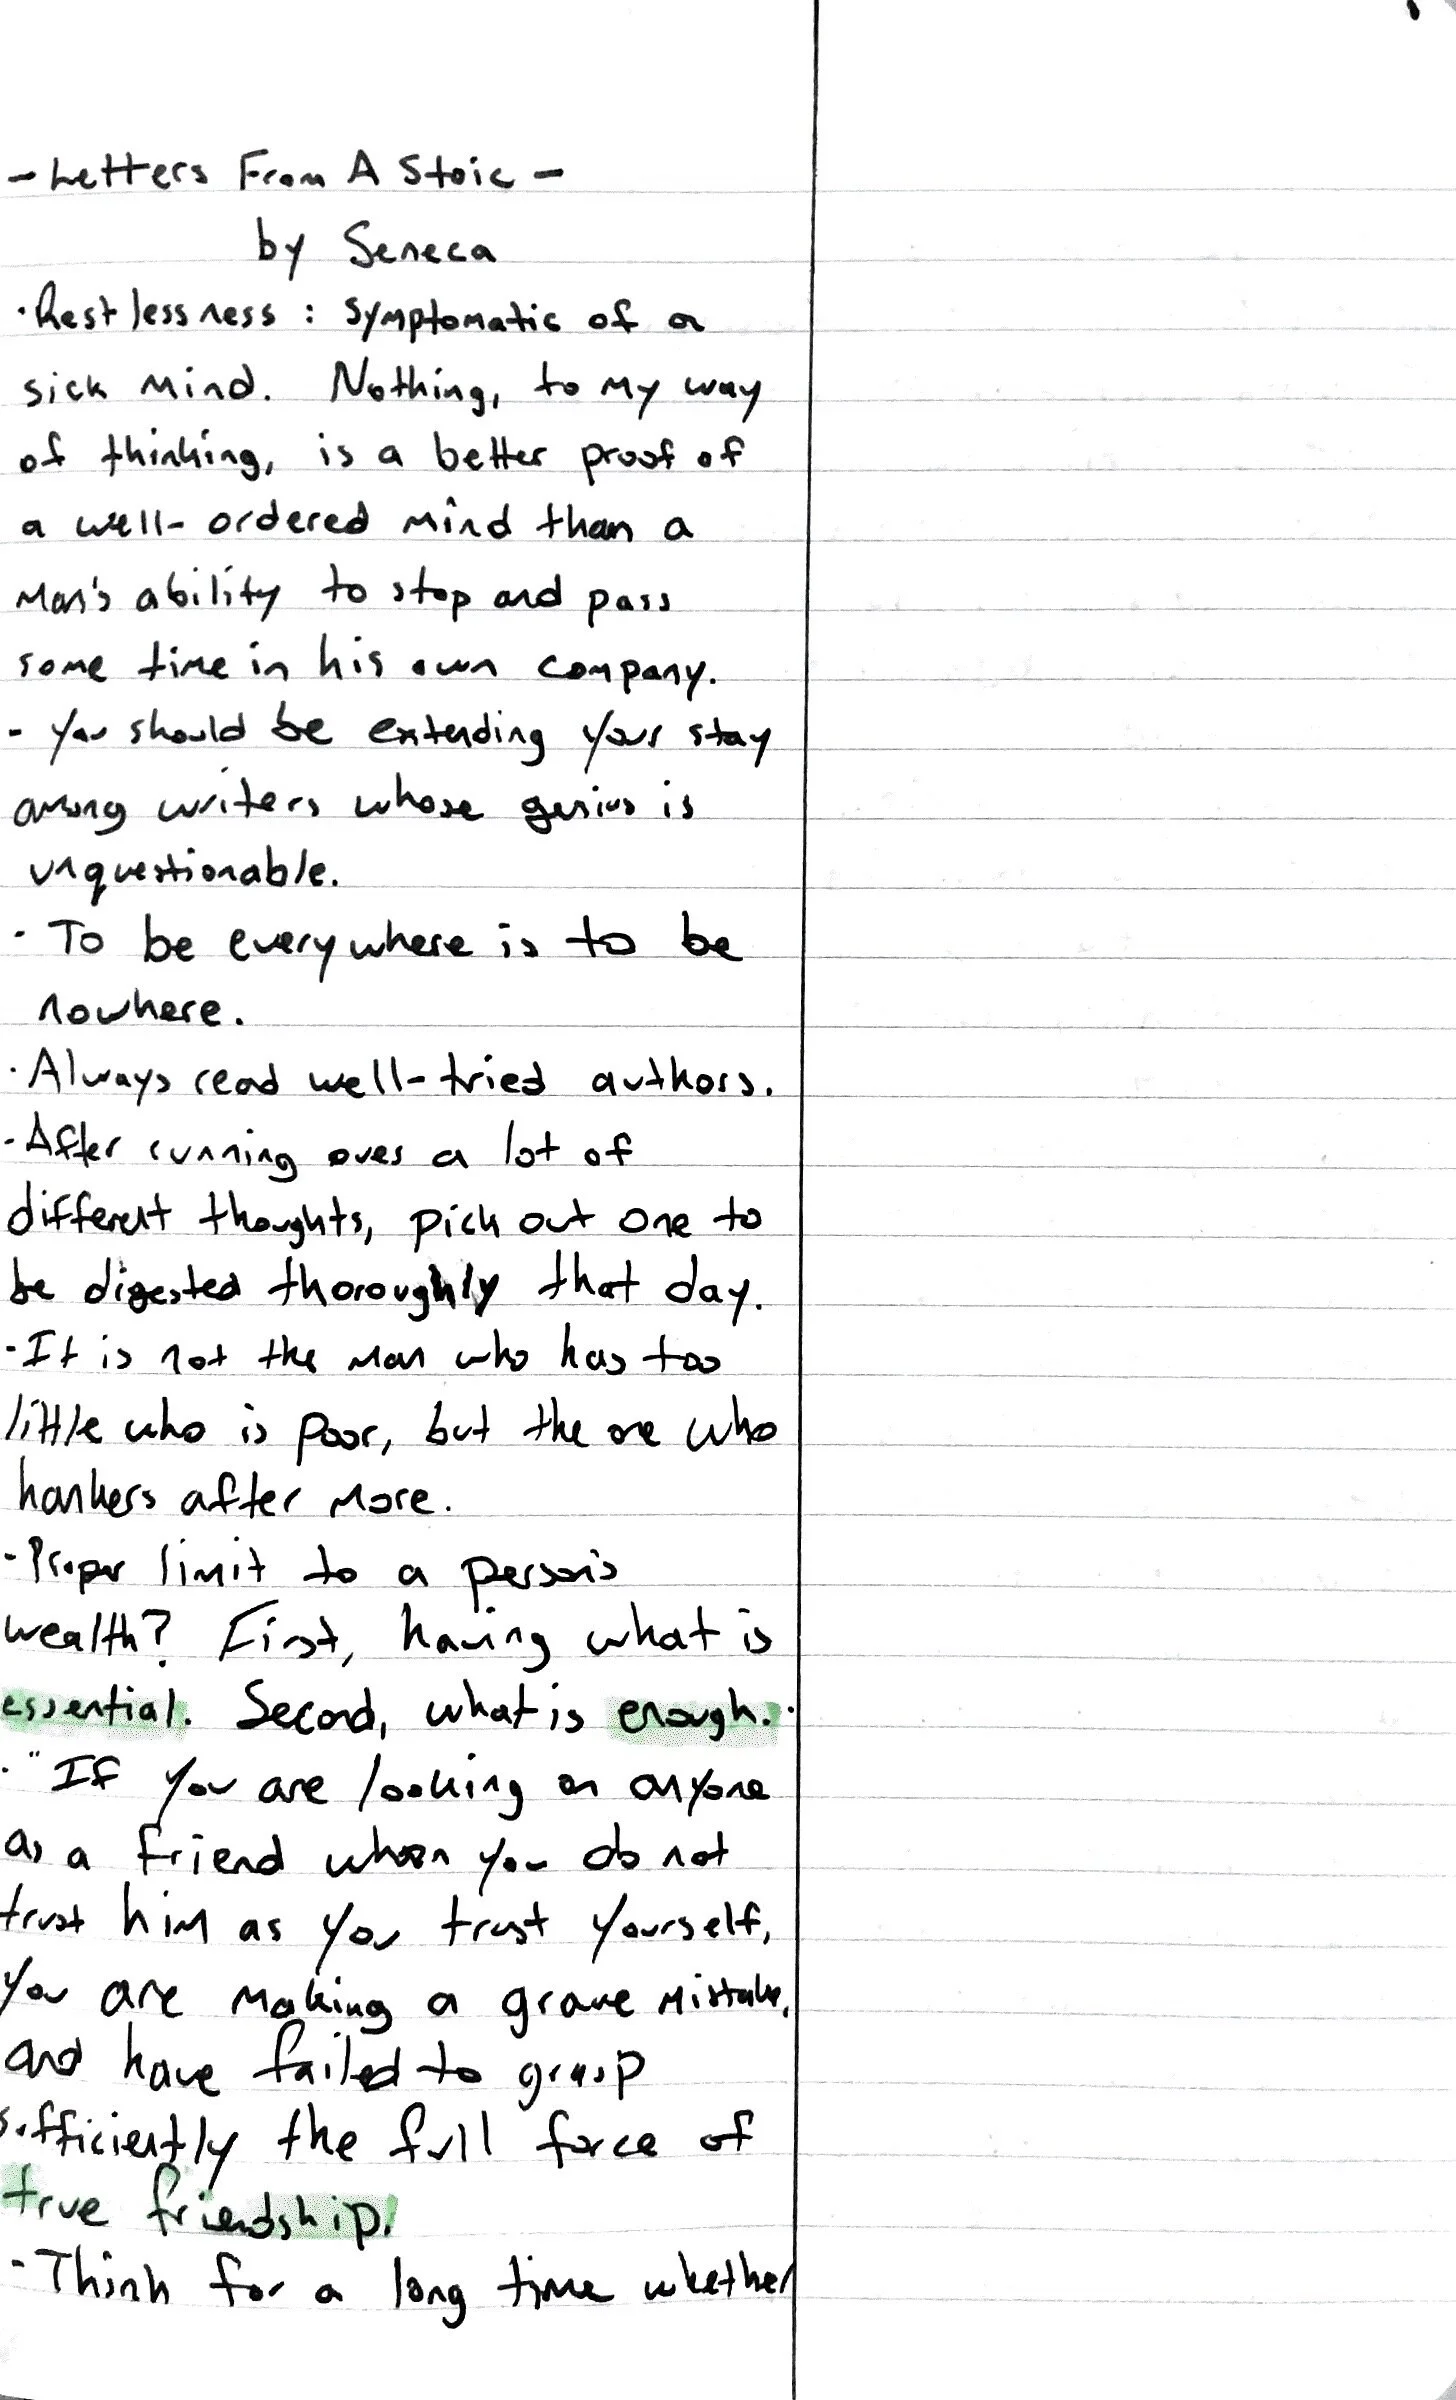 - Letters From A Stoic -
by Seneca
· Restlessness : symptomatic of a
sick mind. Nothing, to my way
of thinking, is a better proof of
a well-ordered mind than a
man's ability to stop and pass
some time in his own company.
- You should be extending your stay
among writers whose genius is
unquestionable.
· To be everywhere is to be
nowhere.
· Always read well-tried authors.
- After running over a lot of
different thoughts, pick out one to
be digested thoroughly that day.
- It is not the man who has too
little who is poor, but the one who
hankers after more.
- Proper limit to a person's
wealth? First, having what is
essential. Second, what is enough.
· "If you are looking on anyone
as a friend when you do not
trust him as you trust yourself,
you are making a grave mistake,
and have failed to grasp
sufficiently the full force of
true friendship.
- Think for a long time whether